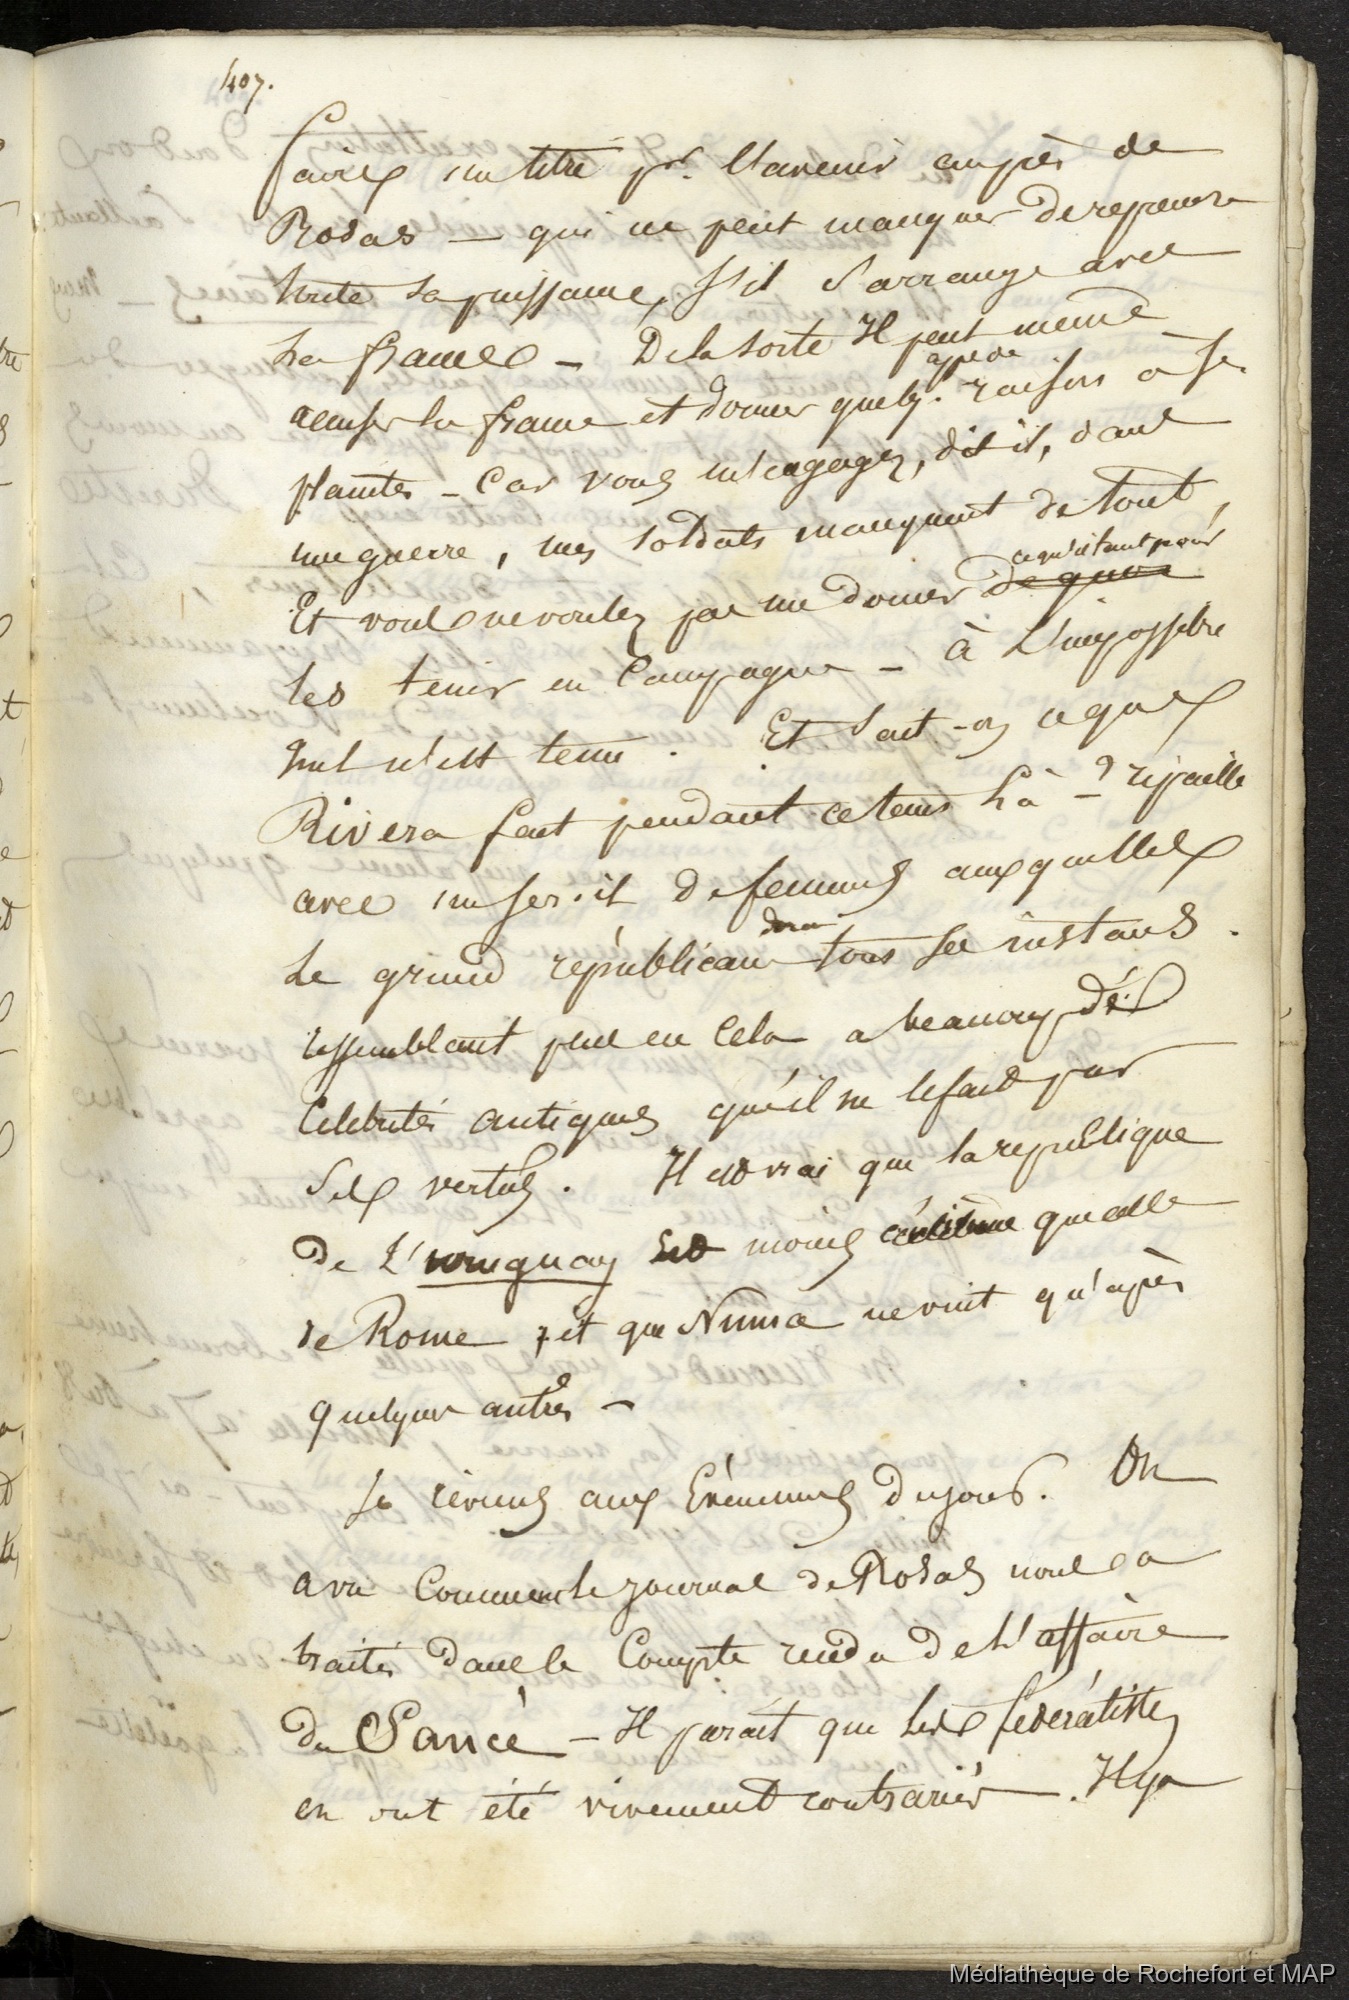 407.
faire un titre pr. l'avenir auprès de
Rosas — qui ne peut manquer de reprendre
toute sa puissance, s'il s'arrange avec
la france — De la sorte Il peut meme
accuser la france et donner quelq. raisons à se
plaintes — Car vous m'engagez, dit il, dans
une guerre, mes soldats manquent de tout,
ce qu'il faut pour
Et vous ne voulez pas me donner de quoi
les tenir en Campagne — à L'impossible
nul n'est tenu. Et sait-on ce que
Rivera fait pendant ce tems là — ripaille
avec un serail de femmes auxquelles
le grand républicain tous ses instans.
ressemblant peu en cela a beaucoup de
Célébrités antiques qu'il ne le fait par
ses vertus. Il est vrai que la republique
de L'uruguay est moins que celle
de Rome, et que Numa ne vint qu'après
quelques autres —
Je reviens aux Evénemens du jour. On
a vu Comment le journal de Rosas nous a
traités dans le Compte rendu de L'affaire
du Sancé — Il parait que les fédéralistes
en ont été vivement contrariés. Il y a
Médiathèque de Rochefort et MAP